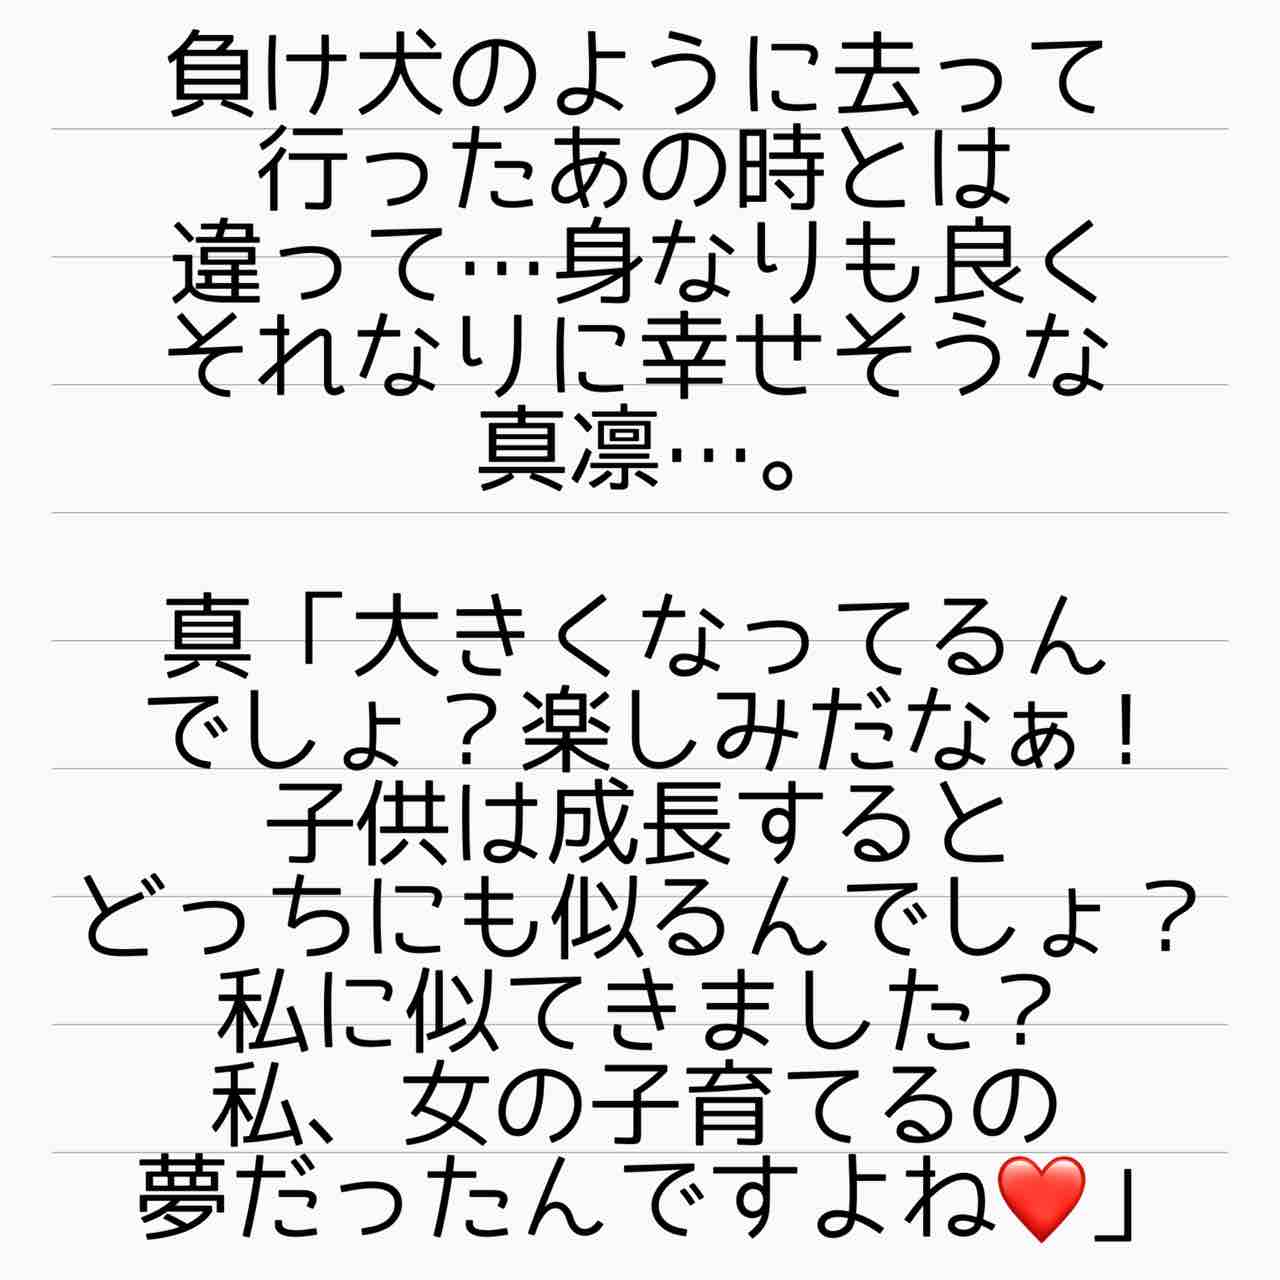 負け犬のように去って
行ったあの時とは
違って…身なりも良く
それなりに幸せそうな
真凛…。
真「大きくなってるん
でしょ？楽しみだなぁ！
子供は成長すると
どっちにも似るんでしょ？
私に似てきました？
私、女の子育てるの
夢だったんですよね❤️」